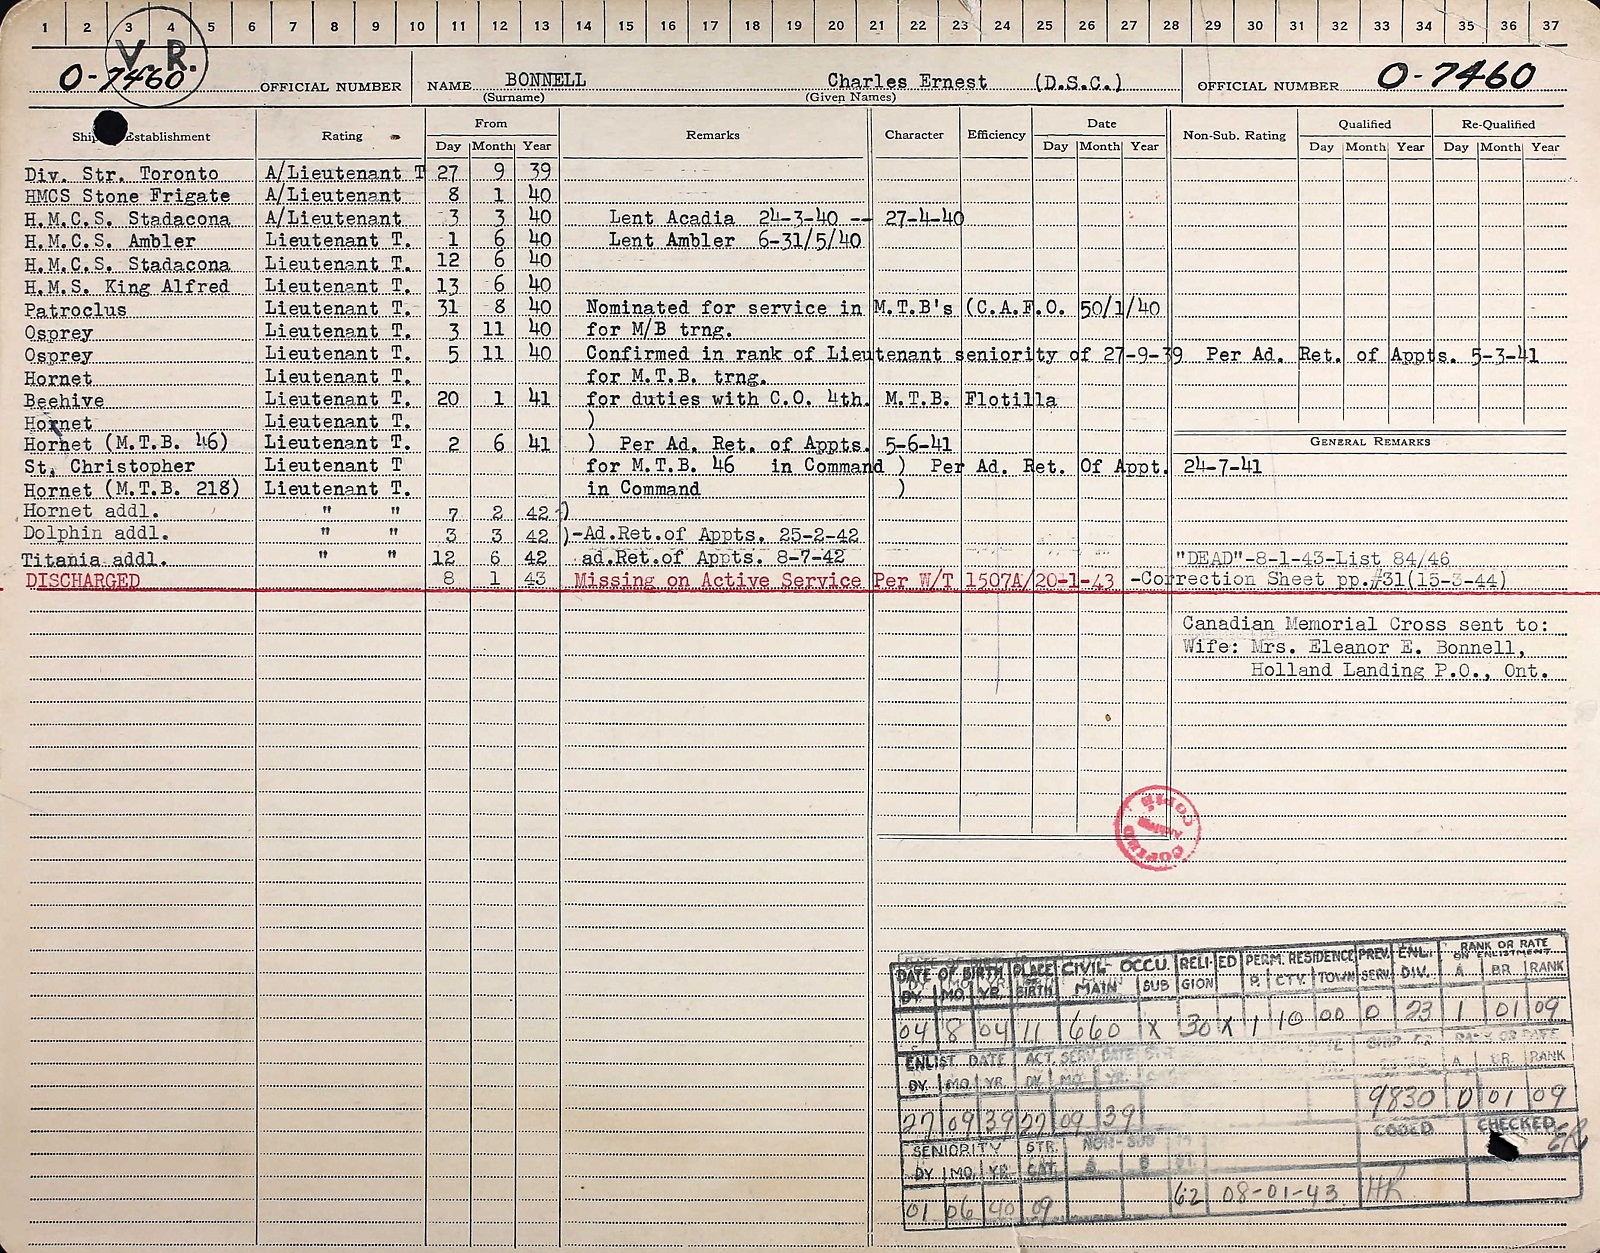 1 2 3 4 5 6 7 8 9 10 11 12 13 14 15 16 17 18 19 20 21 22 23 24 25 26 27 28 29 30 31 32 33 34 35 36 37
V.R.
O-7460 OFFICIAL NUMBER NAME BONNELL Charles Ernest (D.S.C.) OFFICIAL NUMBER O-7460
(Surname) (Given Names)
Ship Establishment Rating From Remarks Character Efficiency Date Non-Sub. Rating Qualified Re-Qualified
Day Month Year Day Month Year Day Month Year Day Month Year
Div. Str. Toronto A/Lieutenant T 27 9 39
HMCS Stone Frigate A/Lieutenant 8 1 40
H.M.C.S. Stadacona A/Lieutenant 3 3 40 Lent Acadia 24-3-40 -- 27-4-40
H.M.C.S. Ambler Lieutenant T. 1 6 40 Lent Ambler 6-31/5/40
H.M.C.S. Stadacona Lieutenant T. 12 6 40
H.M.S. King Alfred Lieutenant T. 13 6 40
Patroclus Lieutenant T. 31 8 40 Nominated for service in M.T.B's (C.A.F.O. 50/1/40
Osprey Lieutenant T. 3 11 40 for M/B trng.
Osprey Lieutenant T. 5 11 40 Confirmed in rank of Lieutenant seniority of 27-9-39 Per Ad. Ret. of Appts. 5-3-41
Hornet Lieutenant T. for M.T.B. trng.
Beehive Lieutenant T. 20 1 41 for duties with C.O. 4th. M.T.B. Flotilla
Hornet Lieutenant T. )
Hornet (M.T.B. 46) Lieutenant T. 2 6 41 ) Per Ad. Ret. of Appts. 5-6-41
GENERAL REMARKS
St. Christopher Lieutenant T for M.T.B. 46 in Command ) Per Ad. Ret. Of Appt. 24-7-41
Hornet (M.T.B. 218) Lieutenant T. in Command )
Hornet addl. " " 7 2 42 )
Dolphin addl. " " 3 3 42 )-Ad.Ret.of Appts. 25-2-42
Titania addl. " " 12 6 42 ad.Ret.of Appts. 8-7-42 "DEAD"-8-1-43-List 84/46
DISCHARGED 8 1 43 Missing on Active Service Per W/T 1507A/20-1-43 -Correction Sheet pp.#31(15-3-44)
Canadian Memorial Cross sent to:
Wife: Mrs. Eleanor E. Bonnell,
Holland Landing P.O., Ont.
COPIED
COPIÉ
DATE OF BIRTH PLACE BIRTH CIVIL- OCCU. RELIGION ED PERM. RESIDENCE PREV. SERV. ENL. DIV. RANK OR RATE ON ENLISTMENT
DY. MO. YR. MAIN SUB P. CTY. TOWN A BR. RANK
04 8 04 11 660 X 30 X 1 10 00 0 23 1 01 09
ENLIST DATE ACT. SERV. DATE
DY. MO. YR. DY. MO. YR. A BR. RANK
27 09 39 27 09 39 9830 D 01 09
SENIORITY STR. CAT. NON-SUB CODED CHECKED
DY. MO. YR.
01 06 40 09 62 08-01-43 HR